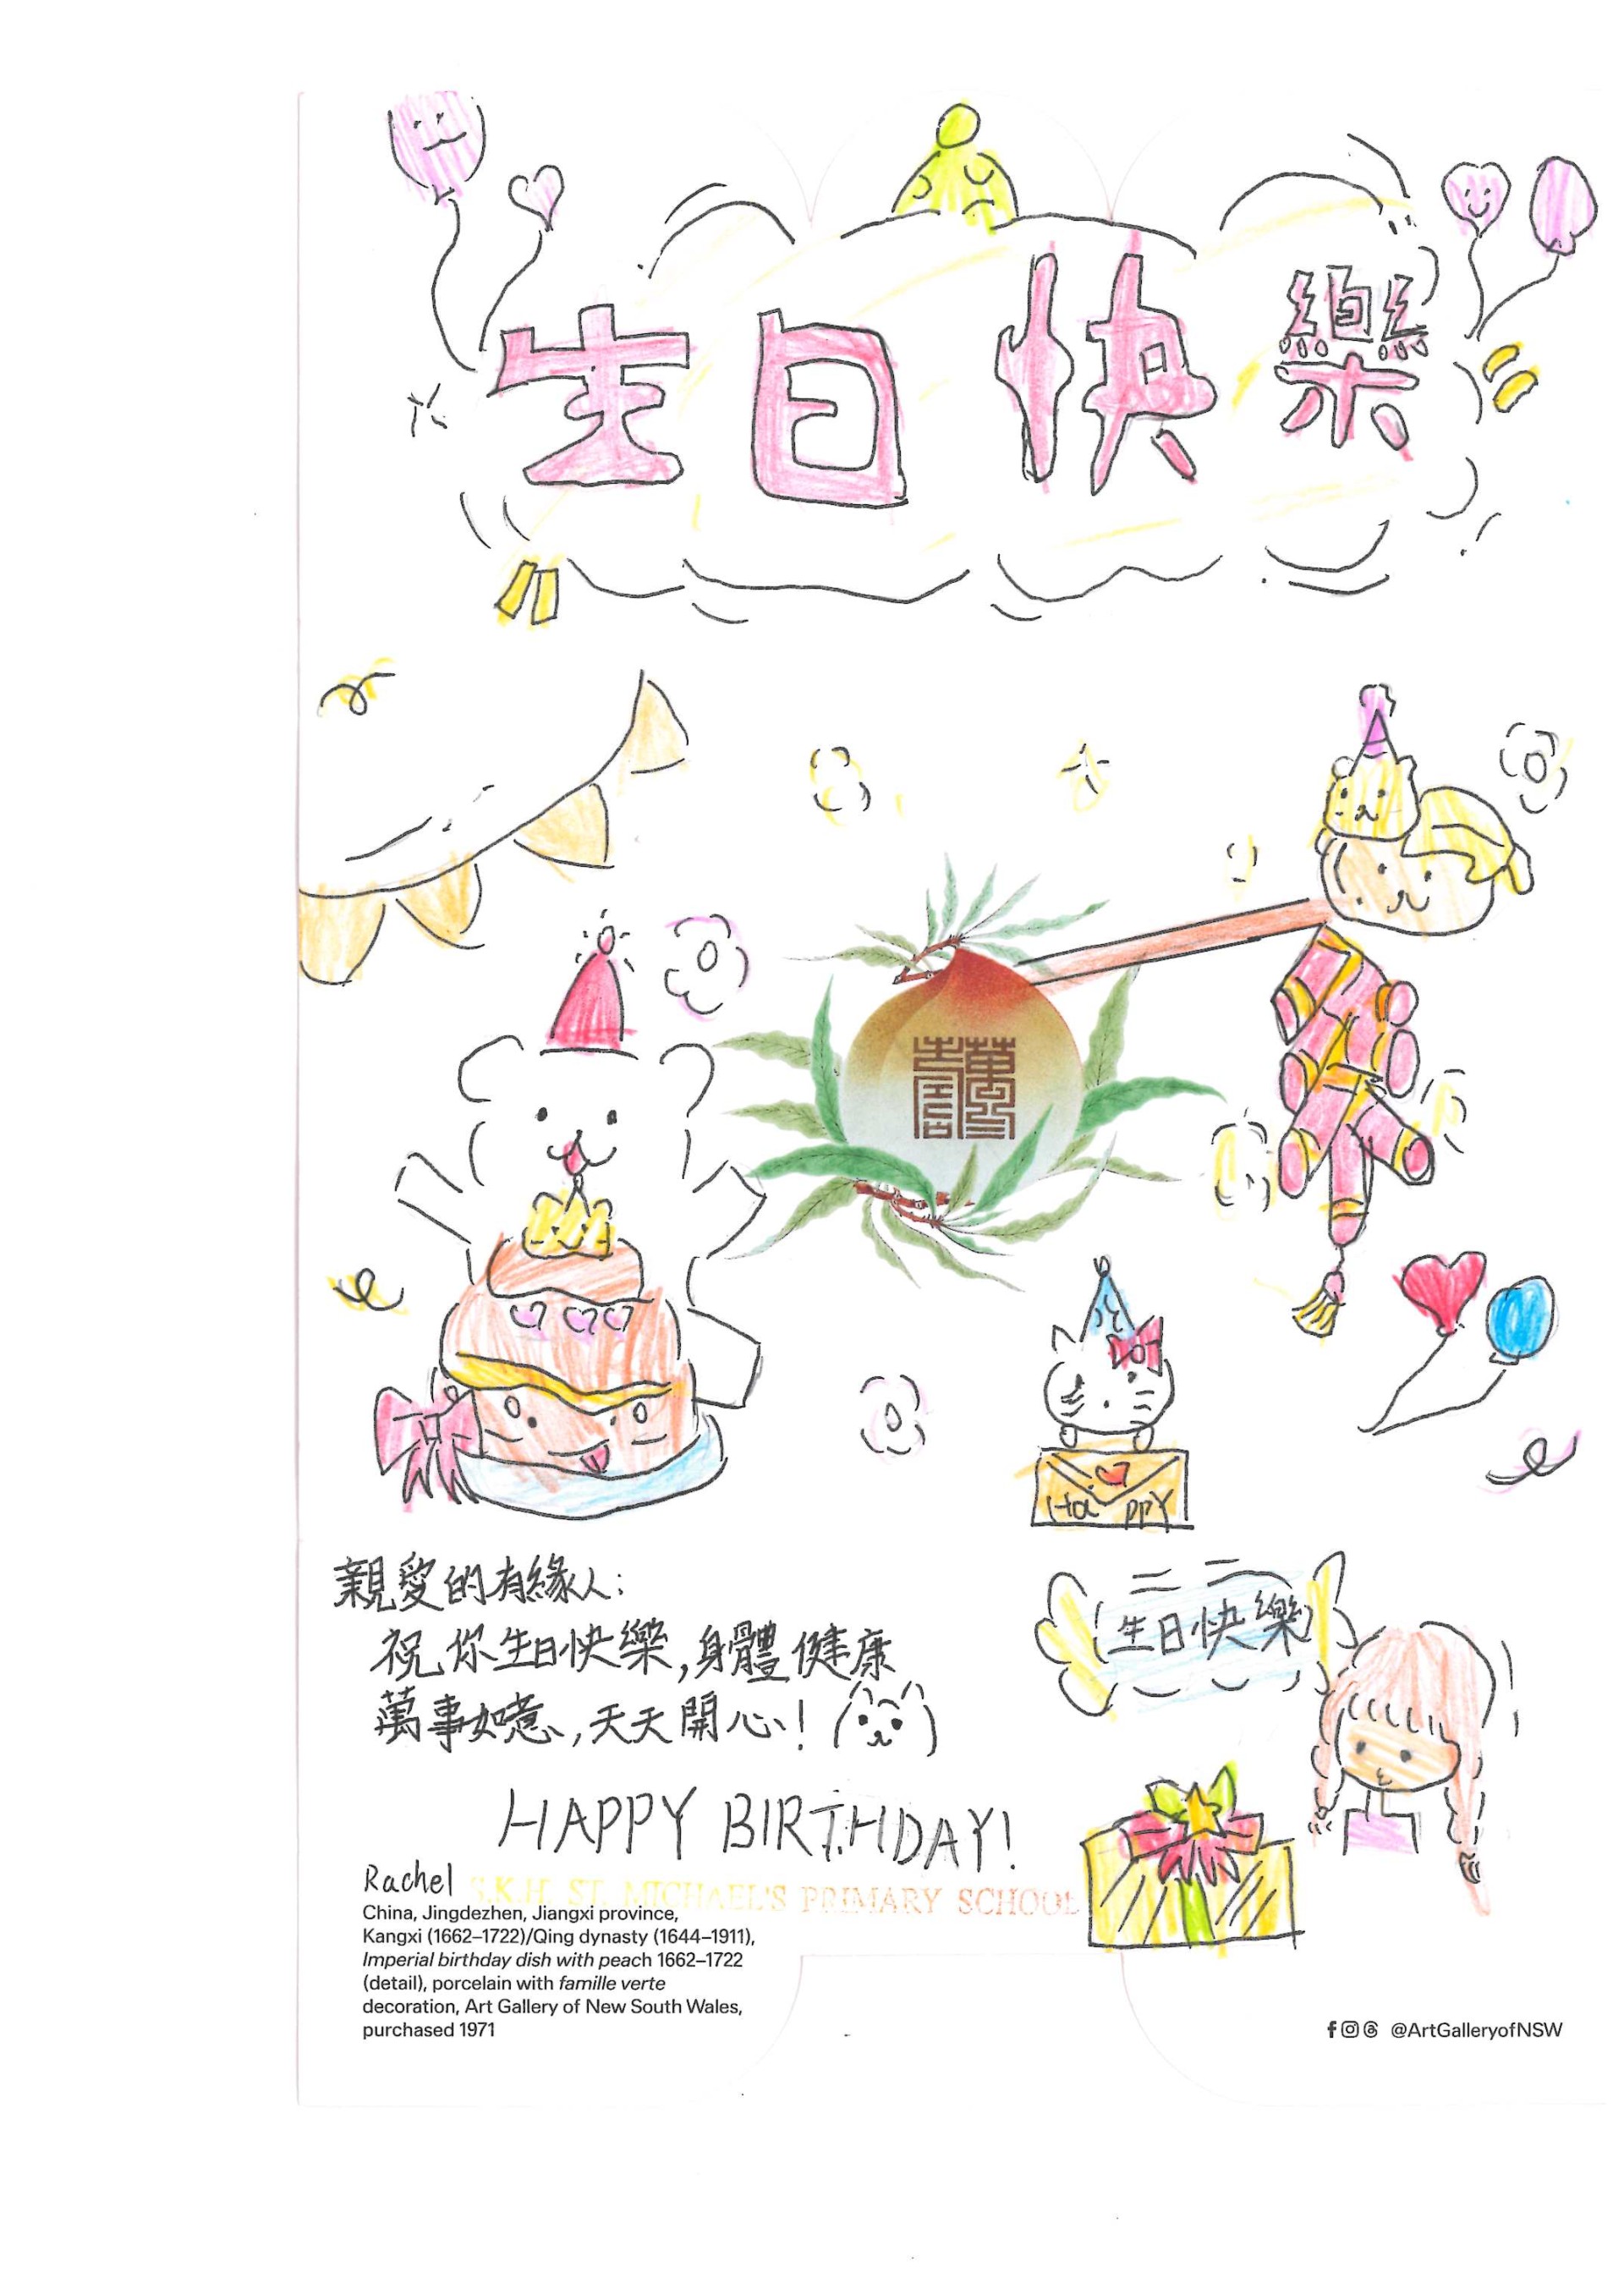 生日快樂
萬壽
Happy
親愛的有緣人:
祝你生日快樂,身體健康
萬事如意,天天開心!
生日快樂
HAPPY BIRTHDAY!
Rachel
S.K.H. ST. MICHAEL'S PRIMARY SCHOOL
China, Jingdezhen, Jiangxi province,
Kangxi (1662–1722)/Qing dynasty (1644–1911),
Imperial birthday dish with peach 1662–1722
(detail), porcelain with famille verte
decoration, Art Gallery of New South Wales,
purchased 1971
@ArtGalleryofNSW